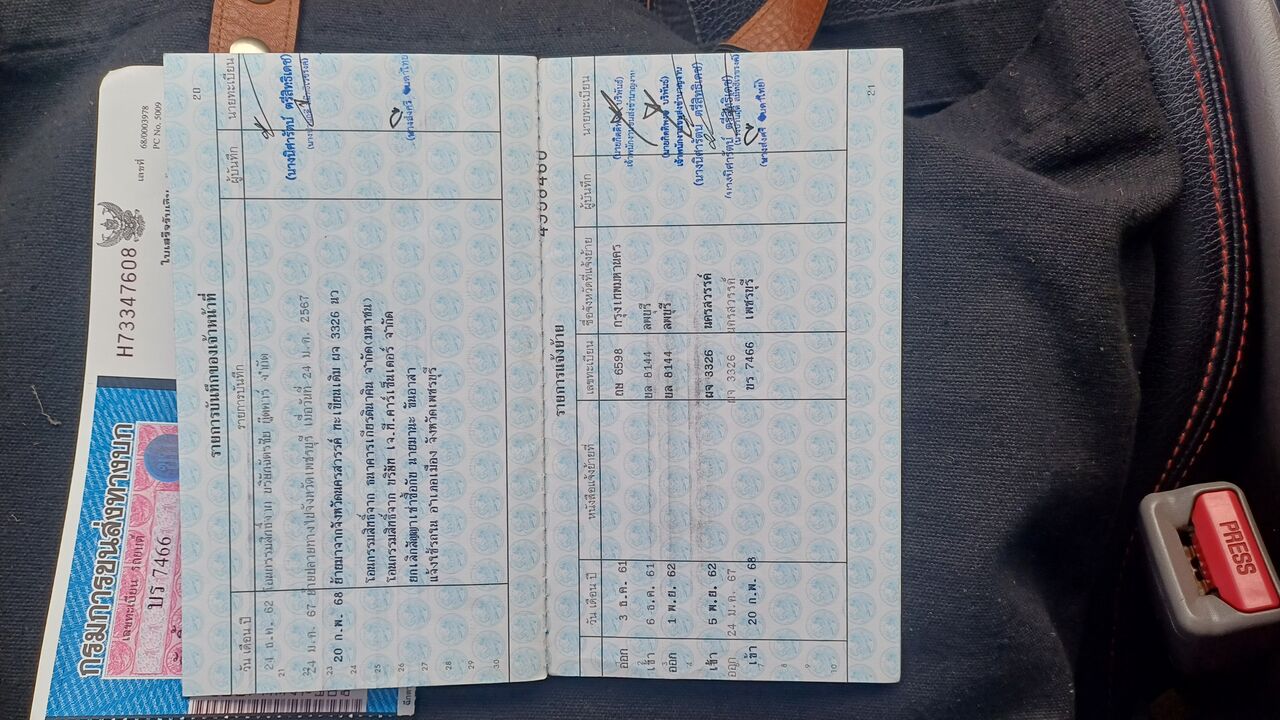 กรมการขนส่งทางบก
เลขทะเบียน
บร 7466
H733347608
เลขที่ 68/00003978
PC No. 5009
20
รายการบันทึกของเจ้าหน้าที่
วัน เดือน ปี รายการบันทึก ผู้บันทึก นายทะเบียน
24 ธ.ค. 62 โอนกรรมสิทธิ์จาก
24 ม.ค. 67 ย้ายปลายทางไปจังหวัดเพชรบุรี เมื่อวันที่ 24 ม.ค. 2567
20 ก.พ. 68 ย้ายมาจากจังหวัดนครสวรรค์ ทะเบียนเดิม ผจ 3326 นว
โอนกรรมสิทธิ์จาก ธนาคารเกียรตินาคิน จำกัด(มหาชน)
โอนกรรมสิทธิ์จาก บริษัท เจ.ที.คาร์เซ็นเตอร์ จำกัด
ยกเลิกสัญญาเช่าซื้อกับ นายมานะ ชื่นอาสา
แจ้งใช้รถใน อำเภอเมือง จังหวัดเพชรบุรี
21
22
23
24
25
26
27
28
29
30
(นางนิศารัตน์ ตรีสิทธิเดช)
รายการแจ้งย้าย
วัน เดือน ปี หนังสือแจ้งย้ายที่ เลขทะเบียน ชื่อจังหวัดที่แจ้งย้าย ผู้บันทึก นายทะเบียน
ออก 3 ธ.ค. 61 ฌษ 6598 กรุงเทพมหานคร
เข้า 6 ธ.ค. 61 ขล 8144 ลพบุรี
ออก 1 พ.ย. 62 ขล 8144 ลพบุรี
เข้า 5 พ.ย. 62 ผจ 3326 นครสวรรค์ (นางนิศารัตน์ ตรีสิทธิเดช)
ออก 24 ม.ค. 67 ผจ 3326 นครสวรรค์ (นางนิศารัตน์ ตรีสิทธิเดช)
เข้า 20 ก.พ. 68 บร 7466 เพชรบุรี
8
9
10
21
PRESS